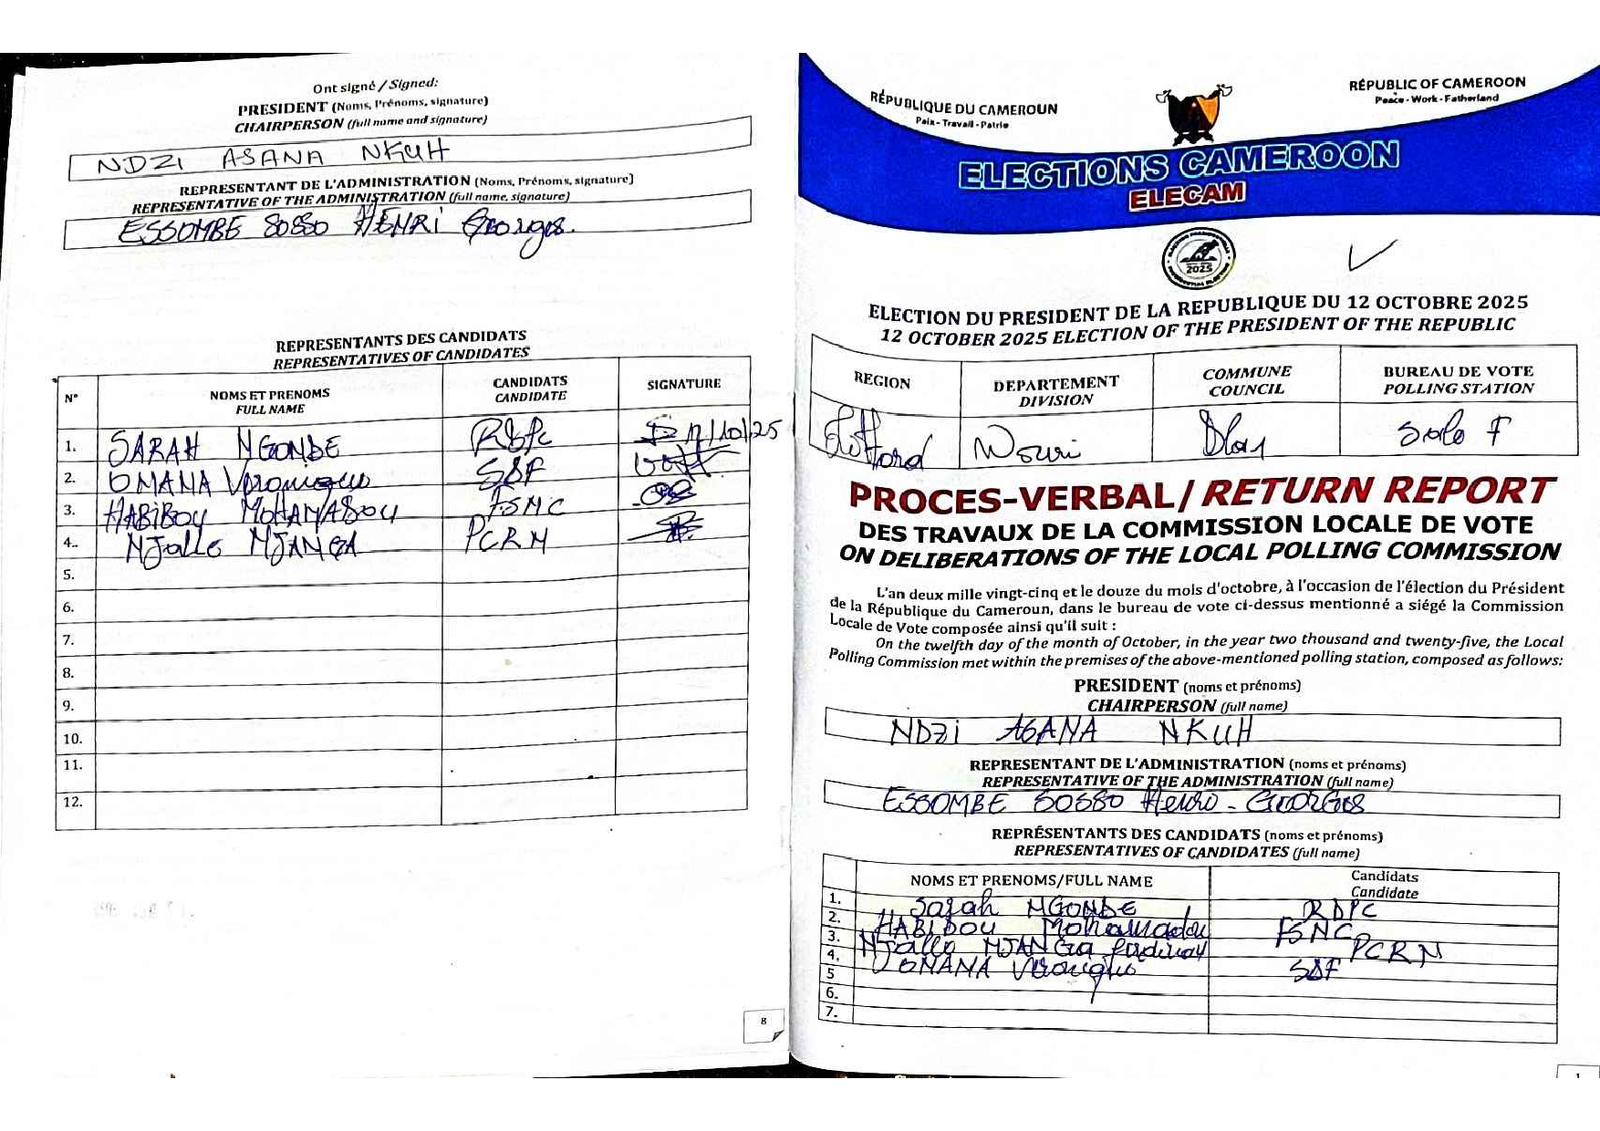 Ont signé / Signed:
PRESIDENT (Noms, Prénoms, signature)
CHAIRPERSON (full name and signature)
NDZI ASANA NKUH
REPRESENTANT DE L'ADMINISTRATION (Noms, Prénoms, signature)
REPRESENTATIVE OF THE ADMINISTRATION (full name, signature)
ESSOMBE SOSSO HENRI Georges.
REPRESENTANTS DES CANDIDATS
REPRESENTATIVES OF CANDIDATES
N° NOMS ET PRENOMS FULL NAME CANDIDATS CANDIDATE SIGNATURE
1. SARAH NGONDE RDPC 12/10/25
2. OMANA Veronique SDF
3. HABIBOU MOHAMADOU FSNC
4. NJallo NJANGA PCRN
5.
6.
7.
8.
9.
10.
11.
12.
8
RÉPUBLIQUE DU CAMEROUN
Paix - Travail - Patrie
RÉPUBLIC OF CAMEROON
Peace - Work - Fatherland
ELECTIONS CAMEROON
ELECAM
2025
ELECTION DU PRESIDENT DE LA REPUBLIQUE DU 12 OCTOBRE 2025
12 OCTOBER 2025 ELECTION OF THE PRESIDENT OF THE REPUBLIC
REGION DEPARTEMENT DIVISION COMMUNE COUNCIL BUREAU DE VOTE POLLING STATION
Littoral Wouri Dla1 F
PROCES-VERBAL/RETURN REPORT
DES TRAVAUX DE LA COMMISSION LOCALE DE VOTE
ON DELIBERATIONS OF THE LOCAL POLLING COMMISSION
L'an deux mille vingt-cinq et le douze du mois d'octobre, à l'occasion de l'élection du Président
de la République du Cameroun, dans le bureau de vote ci-dessus mentionné a siégé la Commission
Locale de Vote composée ainsi qu'il suit :
On the twelfth day of the month of October, in the year two thousand and twenty-five, the Local
Polling Commission met within the premises of the above-mentioned polling station, composed as follows:
PRESIDENT (noms et prénoms)
CHAIRPERSON (full name)
NDZI ASANA NKUH
REPRESENTANT DE L'ADMINISTRATION (noms et prénoms)
REPRESENTATIVE OF THE ADMINISTRATION (full name)
ESSOMBE SOSSO Henri - GEORGES
REPRÉSENTANTS DES CANDIDATS (noms et prénoms)
REPRESENTATIVES OF CANDIDATES (full name)
NOMS ET PRENOMS/FULL NAME Candidats Candidate
1. Sarah NGONDE RDPC
2. HABIBOU Mohamadou FSNC
3. NJallo NJANGA PCRN
4. OMANA Veronique SDF
5
6.
7.
1